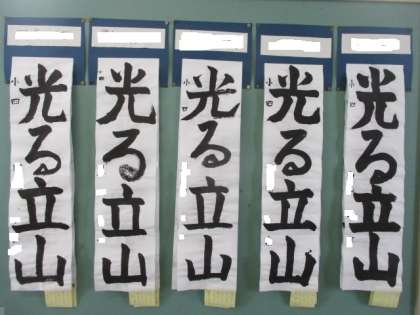 光る立山
小四
光る立山
小四
光る立山
小四
光る立山
小四
光る立山
小四